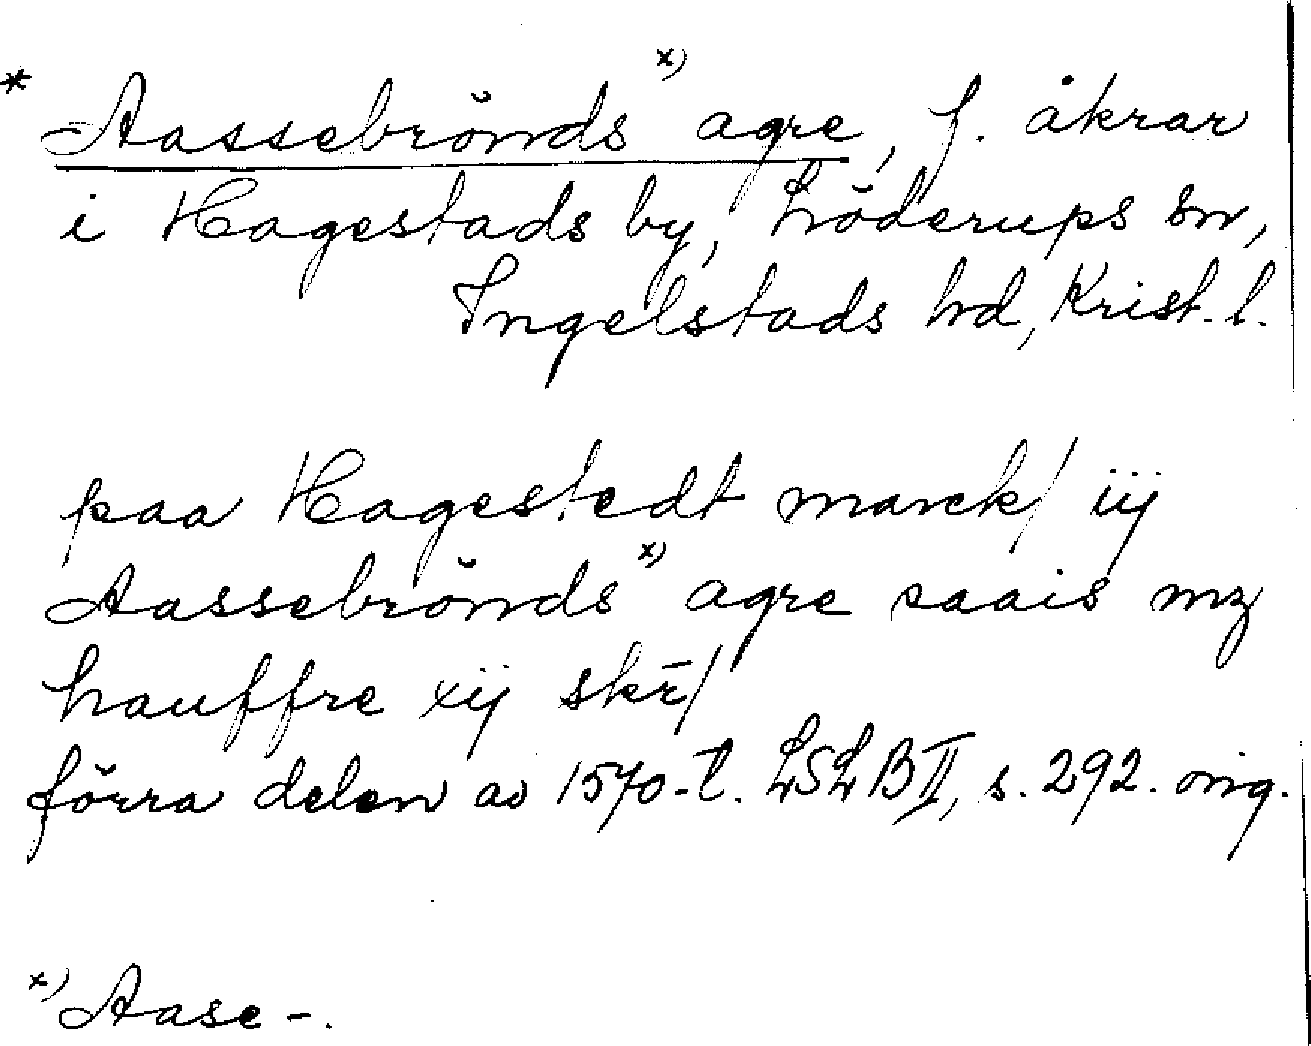 * Aassebrönds x) agre, f. åkrar
i Hagestads by, Löderups sn,
Ingelstads hd, Krist. l.
paa Hagestedt marck/ iij
Aassebrönds x) agre saais mz
hauffre xij skr̄/
förra delen av 1570-t. LSLB II, s. 292. orig.
x) Aase-.